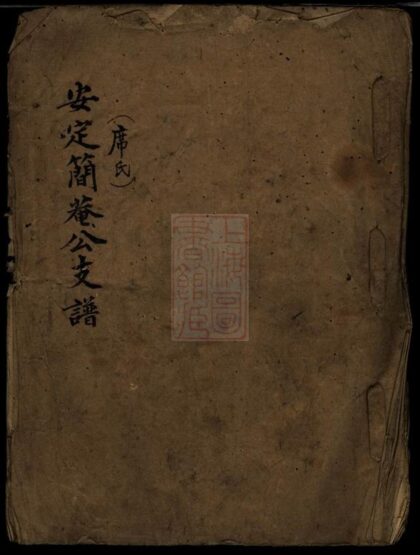 安定簡菴公支譜
（席氏）
上海圖書館藏